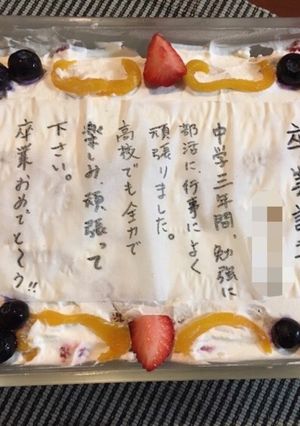 卒業証
中学三年間、勉強に
部活に、行事によく
頑張りました。
高校でも全力で
楽しみ、頑張って
下さい。
卒業おめでとう!!